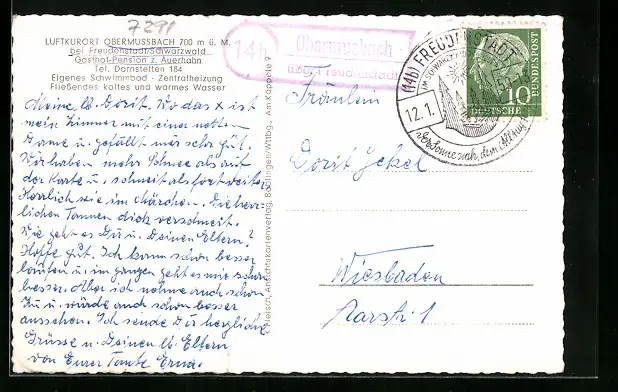 7291
LUFTKURORT OBERMUSSBACH 700 m ü. M.
bei Freudenstadt/Schwarzwald
Gasthof-Pension z. Auerhahn
Tel. Dornstetten 184
Eigenes Schwimmbad - Zentralheizung
Fließendes kaltes und warmes Wasser
Meine lb. Dorit. Wo das x ist
mein Zimmer mit einer netten
Dame u. gefällt mir sehr gut.
Wir haben mehr Schnee als auf
der Karte u. schneit als fort weiter
Herrlich wie im Märchen. Die herr-
lichen Tannen dick verschneit.
Wie geht es Dir u. Deinen Eltern?
Hoffe gut. Ich kann schon besser
laufen u. im ganzen geht es mir schon
besser. Aber ich nehme auch schon
zu u. würde auch schon besser
aussehen. Ich sende Dir herzliche
Grüsse u. Deinen lb. Eltern
von Eurer Tante Erna.
K. Fleisch, Ansichtskartenverlag, Böblingen/Wttbg., Am Käppele 9
14b
Obermusbach
über Freudenstadt
(14b) FREUDENSTADT
IM SCHWARZWALD
12.1.
Der Sonne nach, dem
DEUTSCHE
BUNDESPOST
10
Fräulein
Dorit Jekel
Wiesbaden
Aarstr. 1